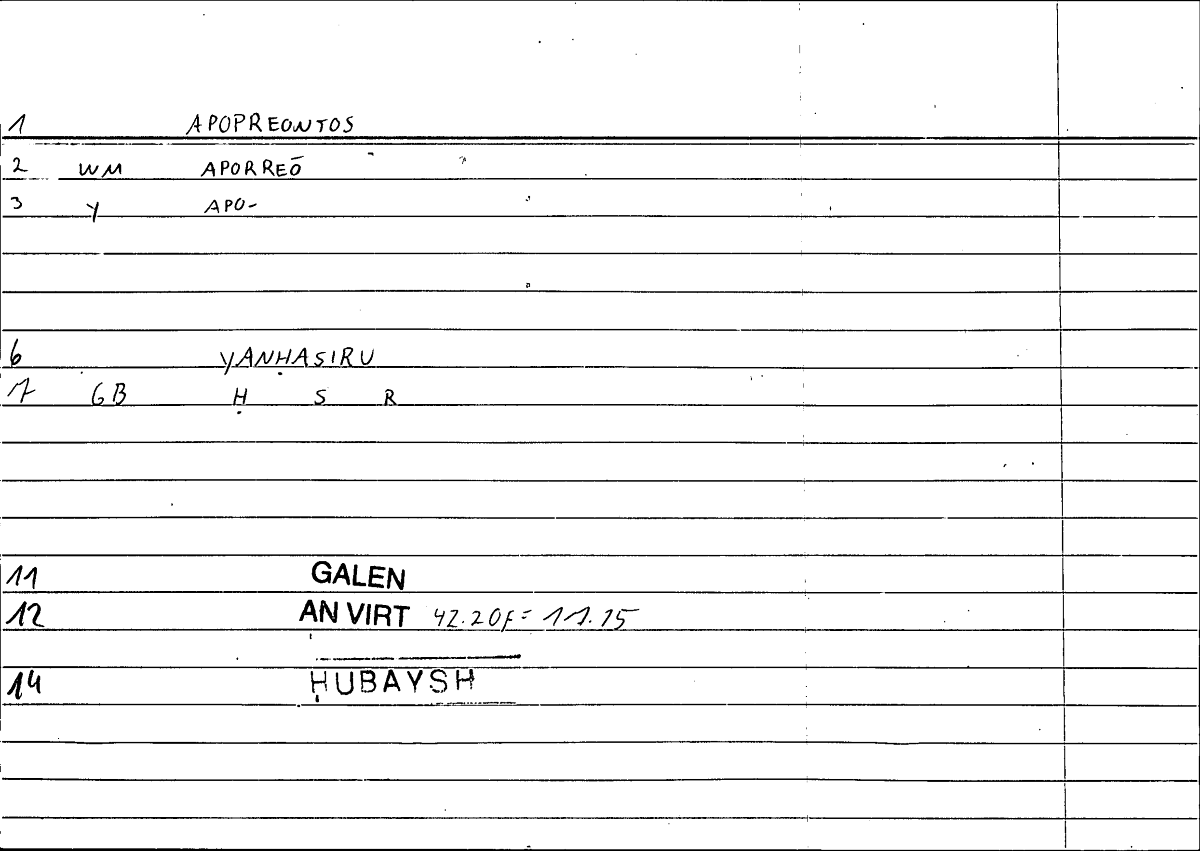 1 APOPREONTOS
2 WM APORREŌ
3 Y APO-
6 YANḤASIRU
7 GB Ḥ S R
11 GALEN
12 AN VIRT 42.20f = 17.15
14 ḤUBAYSH